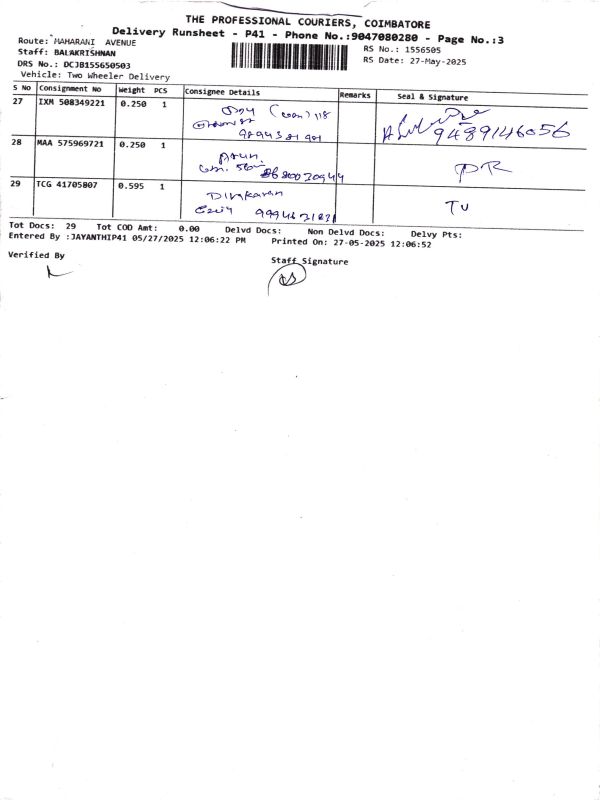 THE PROFESSIONAL COURIERS, COIMBATORE
Delivery Runsheet - P41 - Phone No.:9047080280 - Page No.:3
Route: MAHARANI AVENUE
Staff: BALAKRISHNAN
DRS No.: DCJB155650503
Vehicle: Two Wheeler Delivery
RS No.: 1556505
RS Date: 27-May-2025
S No Consignment No Weight PCS Consignee Details Remarks Seal & Signature
27 IXM 508349221 0.250 1
9489146056
28 MAA 575969721 0.250 1 Arun
PR
29 TCG 41705807 0.595 1 Dinkaran
TV
Tot Docs: 29 Tot COD Amt: 0.00 Delvd Docs: Non Delvd Docs: Delvy Pts:
Entered By :JAYANTHIP41 05/27/2025 12:06:22 PM Printed On: 27-05-2025 12:06:52
Verified By
Staff Signature